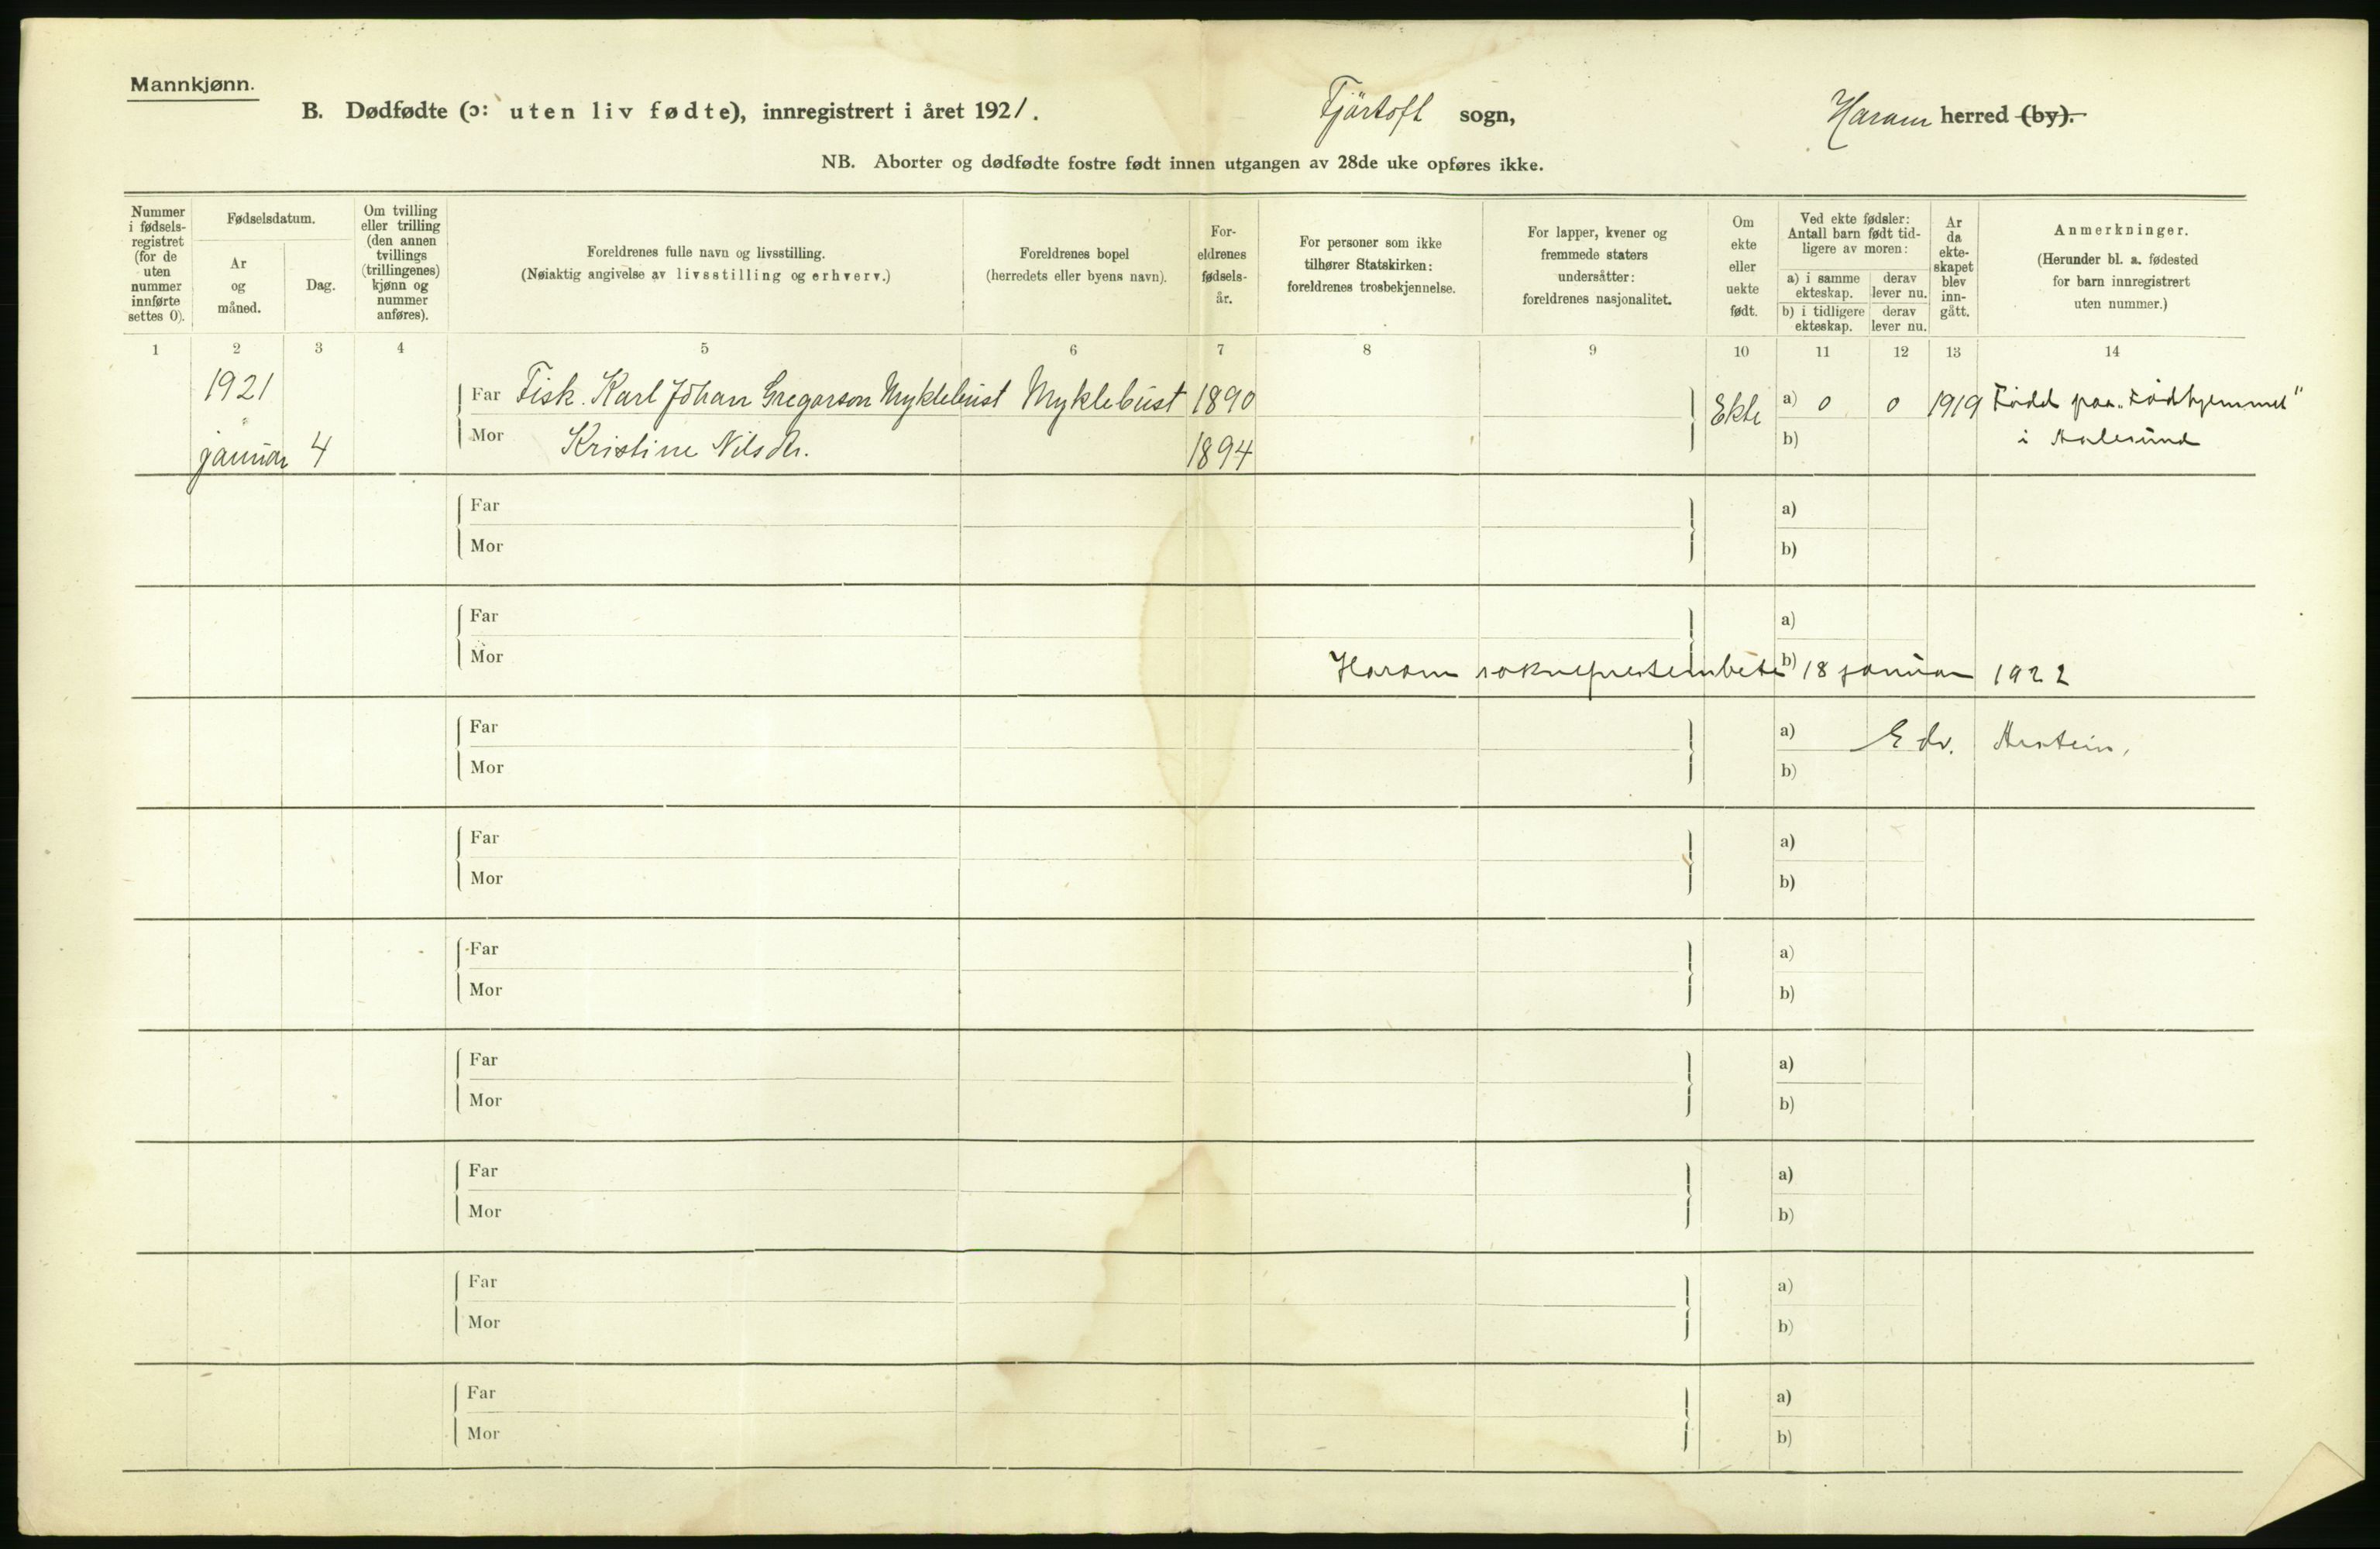 Mannkjønn.
B. Dødfødte (ɔ: uten liv fødte), innregistrert i året 1921. Fjörtoft sogn, Haram herred (by).
NB. Aborter og dødfødte fostre født innen utgangen av 28de uke opføres ikke.
Nummer i fødsels-registret (for de uten nummer innførte settes 0).
Fødselsdatum.
År og måned.
Dag.
Om tvilling eller trilling (den annen tvillings (trillingenes) kjønn og nummer anføres).
Foreldrenes fulle navn og livsstilling.
(Nøiaktig angivelse av livsstilling og erhverv.)
Foreldrenes bopel
(herredets eller byens navn).
For-eldrenes fødsels-år.
For personer som ikke tilhører Statskirken: foreldrenes trosbekjennelse.
For lapper, kvener og fremmede staters undersåtter: foreldrenes nasjonalitet.
Om ekte eller uekte født.
Ved ekte fødsler: Antall barn født tid-ligere av moren:
a) i samme ekteskap.
derav lever nu.
b) i tidligere ekteskap.
derav lever nu.
År da ekte-skapet blev inn-gått.
Anmerkninger.
(Herunder bl. a. fødested for barn innregistrert uten nummer.)
1 2 3 4 5 6 7 8 9 10 11 12 13 14
1921
Far Fisk. Karl Johan Gregorson Myklebust Myklebust 1890 Ekte a) 0 0 1919 Född paa "Födehjemmet"
Mor Kristine Nilsdtr. 1894 b) i Aalesund
januar 4
Far a)
Mor b)
Far a)
Mor b)
Haram sokneprestembete 18 januar 1922
Far a) Edv.
Mor b)
Far a)
Mor b)
Far a)
Mor b)
Far a)
Mor b)
Far a)
Mor b)
Far a)
Mor b)
Far a)
Mor b)